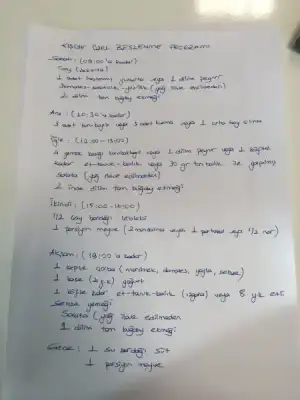 KİŞİYE ÖZEL BESLENME PROGRAMI
Sabah: (09:00'a kadar)
Çay (şekersiz)
1 adet haşlanmış yumurta veya 1 dilim peynir
Domates-salatalık-yeşillik (yağ ilave edilmeden)
2 dilim tam buğday ekmeği
Ara: (10:30'a kadar)
3 adet kuru kayısı veya 3 adet hurma veya 1 orta boy elma
Öğle: (12:00 - 13:00)
4 yemek kaşığı kurubaklagil veya 2 dilim peynir veya 2 köfte
kadar et-tavuk-balık veya 30 gr ton balık ile yapılmış
salata (yağ ilave edilmeden)
2 ince dilim tam buğday ekmeği
İkindi: (15:00 - 16:00)
1/2 çay bardağı leblebi
1 porsiyon meyve (2 mandalina veya 1 portakal veya 1/2 nar)
Akşam: (19:00'a kadar)
1 kepçe çorba (mercimek, domates, yayla, sebze)
1 kase (2 y.k) yoğurt
1 köfte kadar et-tavuk-balık (ızgara) veya 8 yk etli
sebze yemeği
Salata (yağ ilave edilmeden
1 dilim tam buğday ekmeği
Gece: 1 su bardağı süt
1 porsiyon meyve